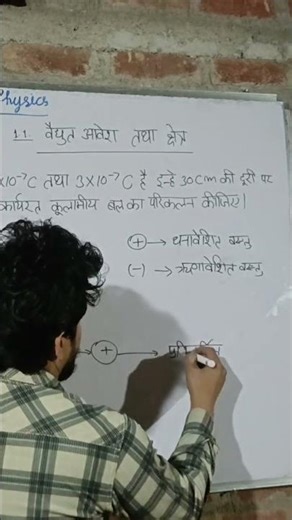 Physics
1.1 वैद्युत आवेश तथा क्षेत्र
×10⁻⁷C तथा 3×10⁻⁷C है इन्हे 30cm की दूरी पर
कार्यरत कूलामीय बल का परिकलन कीजिए।
(+) → धनावेशित वस्तु
(-) → ऋणावेशित वस्तु
(+) →